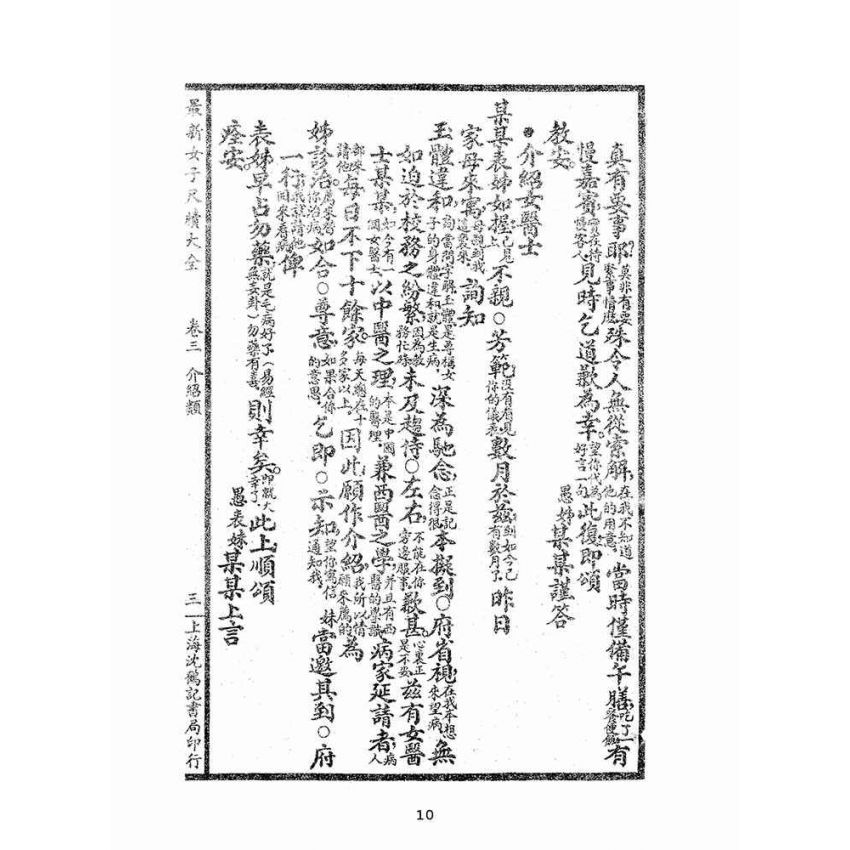 真有要事耶？莫非有要緊事情應 殊令人無從索解，在我不知道他的用意。當時僅備午膳，吃了一餐便飯 有
慢嘉賓，實在待慢客人 見時乞道歉為幸。望你代為好言一句 此復，即頌
教安。 愚姊某某謹答
●介紹女醫士
某某表姊如握，已見上 不親○芳範，沒有看見你的儀表 數月於茲，到如今已有數月了 昨日
家母來寓，母親到我這裏來 詢知
玉體違和，詢當問字解玉體是尊稱女子的身體違和就是生病 深為馳念，正是記念得很 本擬到○府省視，在我本想來望病 無
如迫於校務之紛繁，因為教務忙碌 未及趨侍○左右，不能在你旁邊服事 歉甚。心裏正是不安 茲有女醫
士某某，如今有一個女醫士 以中醫之理，本是中國的醫理 兼西醫之學，并且有西醫的學識 病家延請者，病人
部來請他 每日不下十餘家，每天總在十多家以上 因此願作介紹，我所以情願來薦的 為
姊診治，薦來替你治病 如合○尊意，如果合你的意思 乞即○示知，望你寫信通知我 妹當邀其到○府
一行，我就請他同來看病 俾
表姊早占勿藥，就是毛病好了（易經無妄卦）勿藥有喜 則幸矣。即就大幸了 此上順頌
痊安。 愚表妹某某上言
最新女子尺牘大全 卷三 介紹類 三一 上海沈鶴記書局印行
10